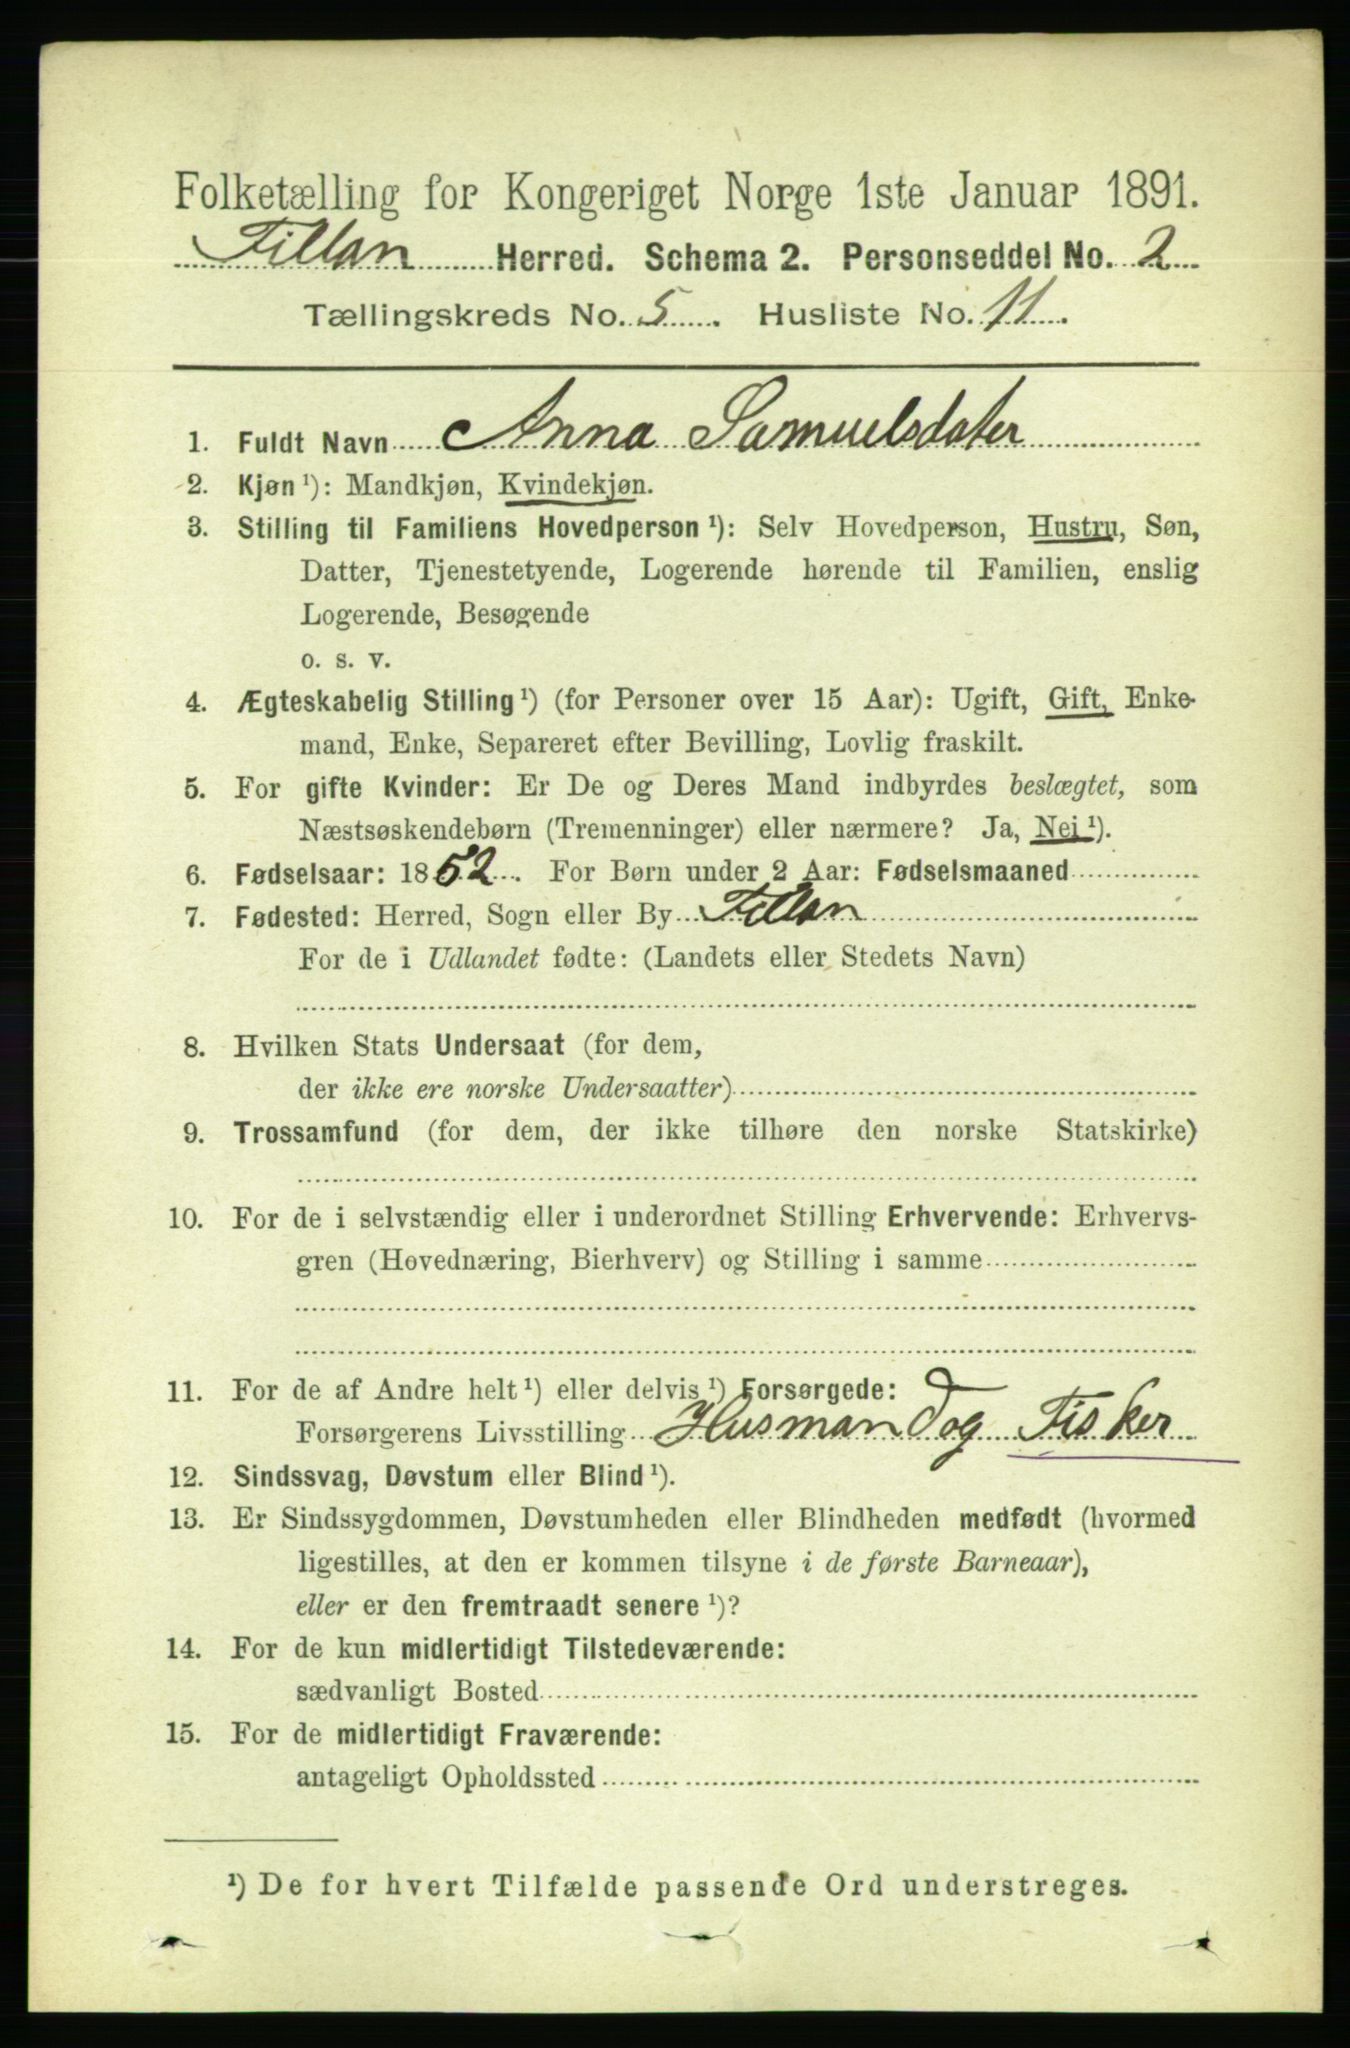 Folketælling for Kongeriget Norge 1ste Januar 1891.
Fillan Herred. Schema 2. Personseddel No. 2
Tællingskreds No. 5. Husliste No. 11.
1. Fuldt Navn Anna Samuelsdater
2. Kjøn ¹): Mandkjøn, Kvindekjøn.
3. Stilling til Familiens Hovedperson ¹): Selv Hovedperson, Hustru, Søn,
Datter, Tjenestetyende, Logerende hørende til Familien, enslig
Logerende, Besøgende
o. s. v.
4. Ægteskabelig Stilling ¹) (for Personer over 15 Aar): Ugift, Gift, Enke-
mand, Enke, Separeret efter Bevilling, Lovlig fraskilt.
5. For gifte Kvinder: Er De og Deres Mand indbyrdes beslægtet, som
Næstsøskendebørn (Tremenninger) eller nærmere? Ja, Nei ¹).
6. Fødselsaar: 1852. For Børn under 2 Aar: Fødselsmaaned
7. Fødested: Herred, Sogn eller By Fillan
For de i Udlandet fødte: (Landets eller Stedets Navn)
8. Hvilken Stats Undersaat (for dem,
der ikke ere norske Undersaatter)
9. Trossamfund (for dem, der ikke tilhøre den norske Statskirke)
10. For de i selvstændig eller i underordnet Stilling Erhvervende: Erhvervs-
gren (Hovednæring, Bierhverv) og Stilling i samme
11. For de af Andre helt ¹) eller delvis ¹) Forsørgede:
Forsørgerens Livsstilling Husmand og Fisker
12. Sindssvag, Døvstum eller Blind ¹).
13. Er Sindssygdommen, Døvstumheden eller Blindheden medfødt (hvormed
ligestilles, at den er kommen tilsyne i de første Barneaar),
eller er den fremtraadt senere ¹)?
14. For de kun midlertidigt Tilstedeværende:
sædvanligt Bosted
15. For de midlertidigt Fraværende:
antageligt Opholdssted
¹) De for hvert Tilfælde passende Ord understreges.